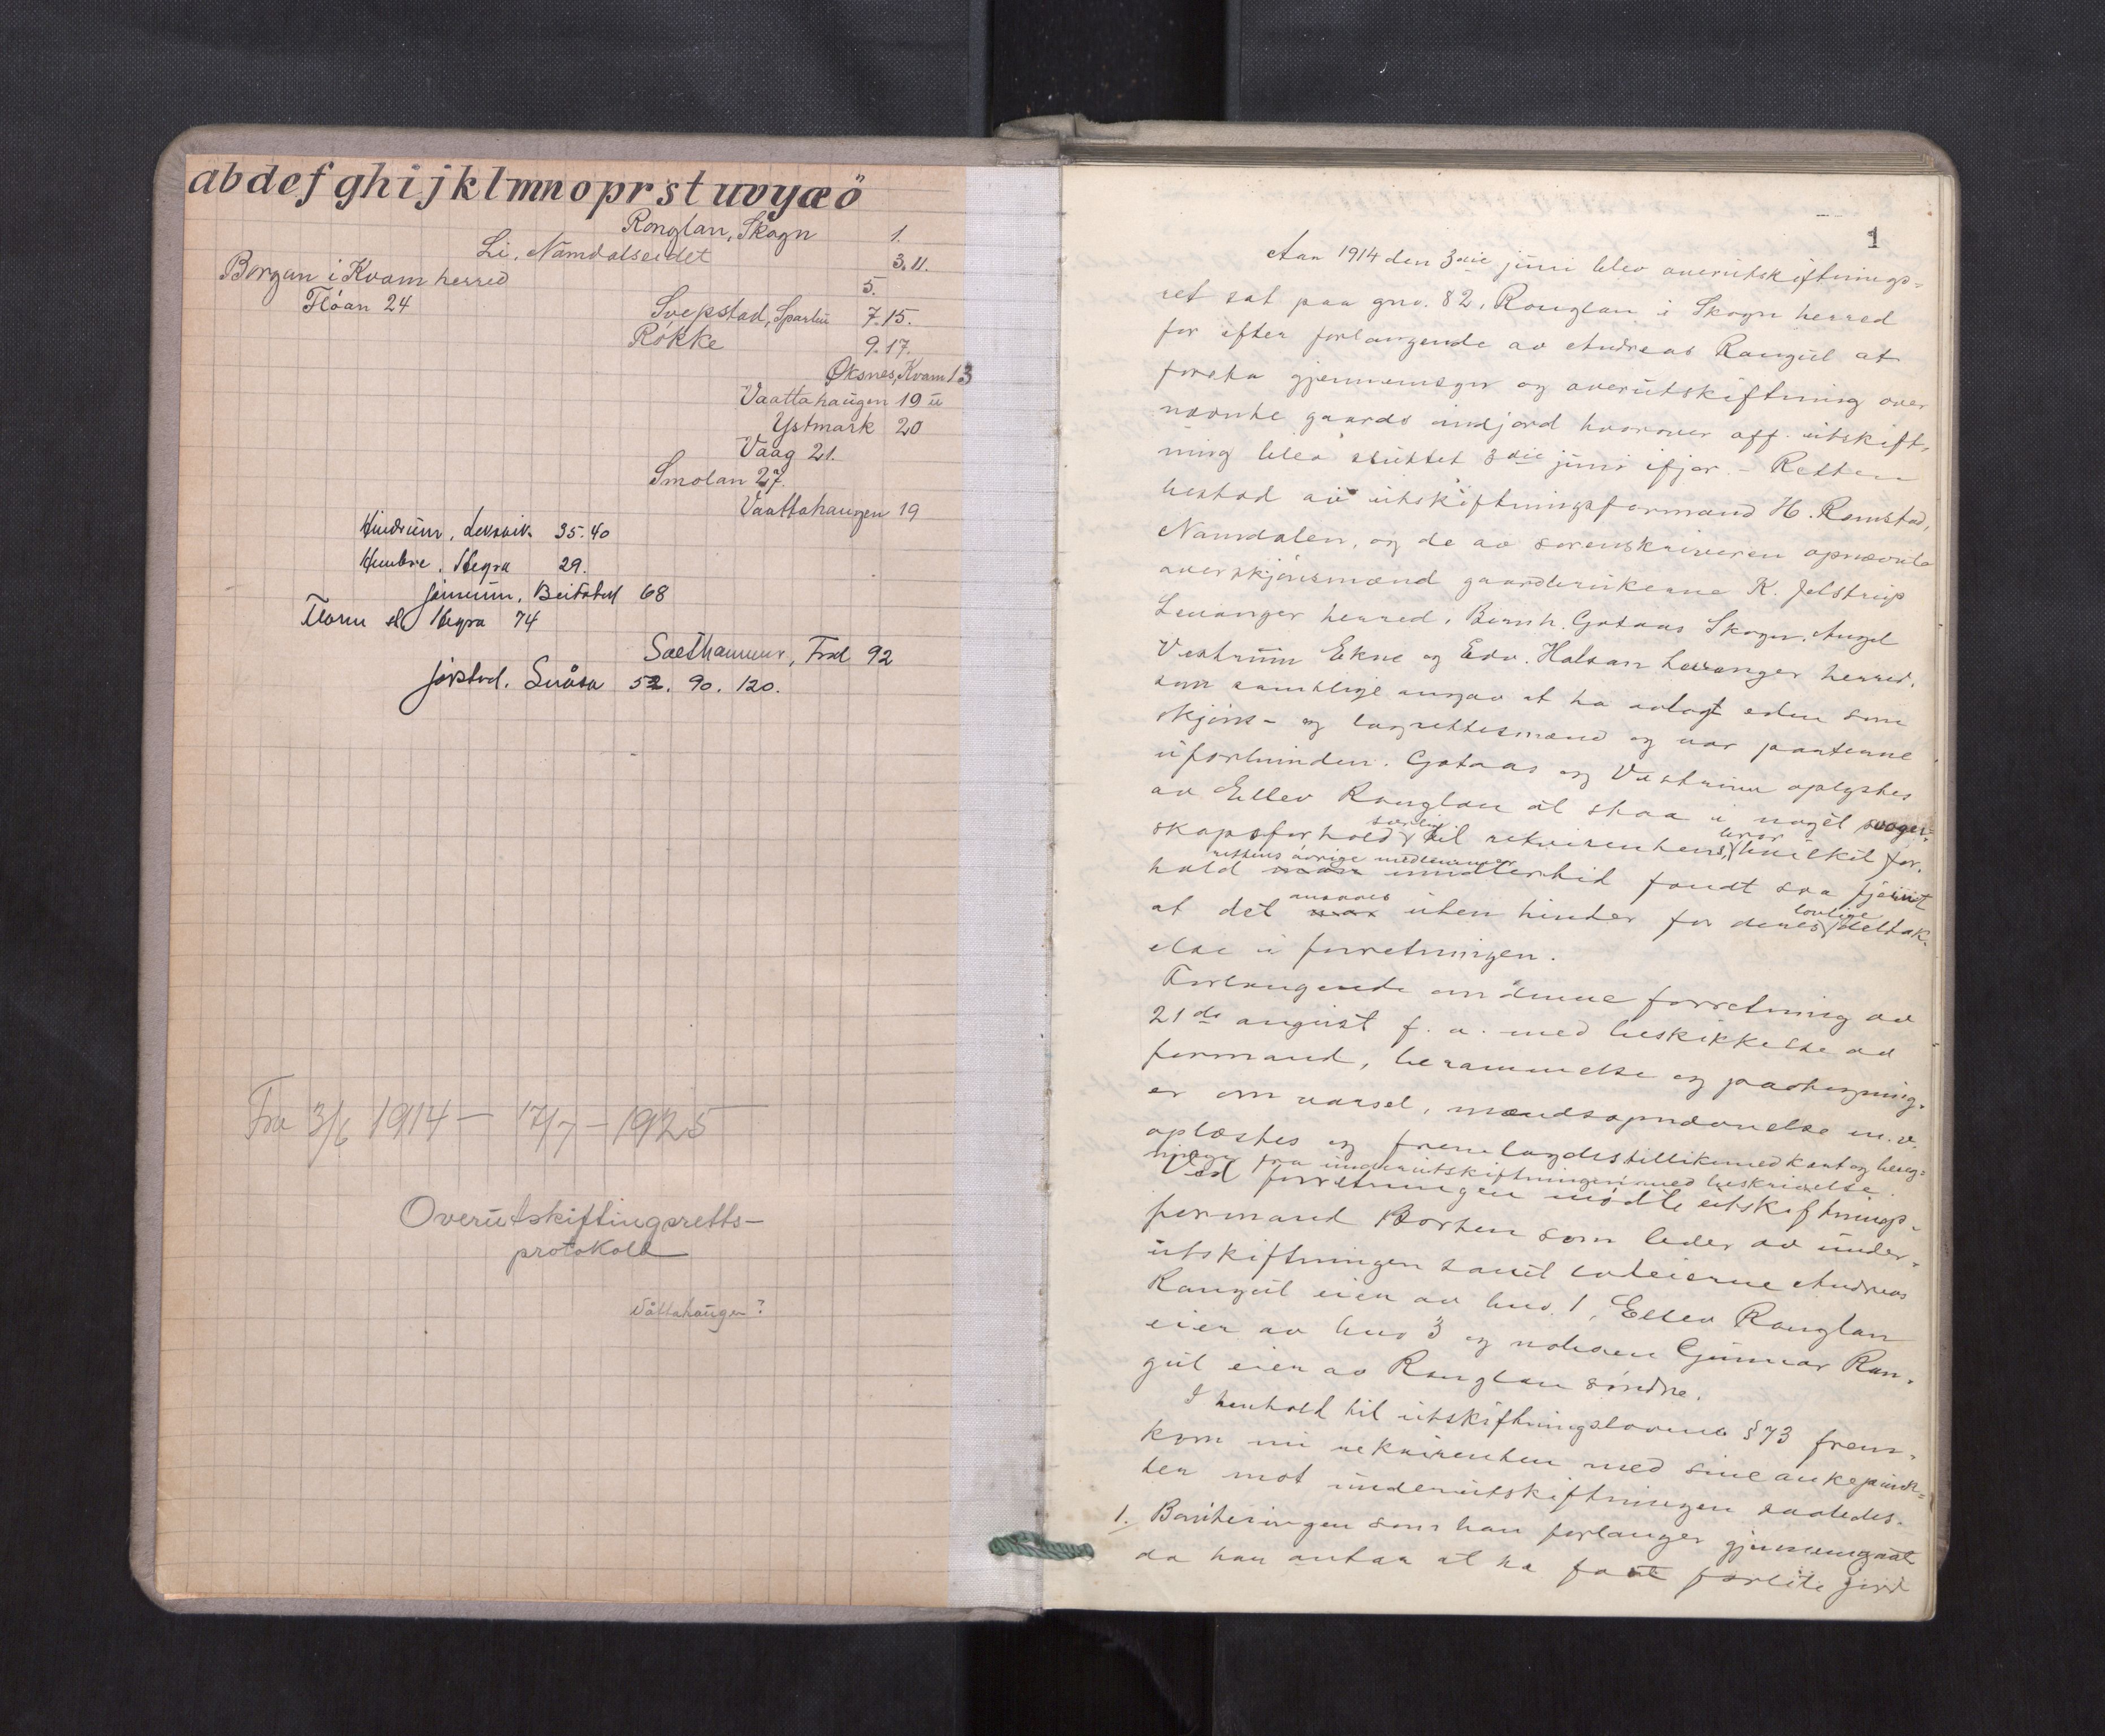 abdefghijklmnoprstuvyæö
Ronglan, Skogn 1.
Li, Namdalseidet 3.11.
Borgan i Kvam herred 5.
Flóan 24
Svepstad, Sparbu 7.15.
Rökke 9.17.
Øksnes, Kvam 13
Vaattahaugen 19 u
Ystmark 20
Vaag 21.
Smolan 27.
Vaattahaugen 19
Hindrum, Leksvik 35.40
Hembre, Hegra 29.
Jörum, Beitstad 68
Flora Hegra 74
92
Jörstad. Snåsa 52. 90. 120.
Fra 3/6 1914 – 17/7 – 1925
Overutskiftingsretts-
protokoll
Våttahaugen?
1
Aar 1914 den 3die juni blev overutskiftnings-
ret sat paa gno. 82, Ronglan i Skogn herred
for efter forlangende av Andreas Rangul at
foreta gjennemsyn og overutskiftning over
nævnte gaards indjord hvorover off. utskift-
ning blev sluttet 3die juni ifjor. – Retten
bestod av utskiftningsformand H. Remstad,
Namdalen, og de av sorenskriveren opnævnte
overskjönsmænd gaardbrukerne K. Jelstrup
Levanger herred, Bernh. Gotaas Skogn, Angel
Vestrum Ekne og Edv. Halsan Levanger herred,
som samtlige angav at ha avlagt eden som
skjöns- og lagrettesmænd og var parterne
uforbunden. Gotaas og Vestrum oplystes
av Ellev Ronglan at staa i noget svoger-
skapsforhold til rekvirentens, hvilket for-
hold rettens övrige medlemmer imidlertid fandt saa fjernt
at det ansaaes uten hinder for deres lovlige deltak-
else i forretningen.
Forlangende om denne forretning av
21de august f. a. med beskikkelse av
formand, berammelse og paategning-
er om varsel, mændsopnævnelse m. v.
oplæstes og fremlagdes tillikemed kart og bereg-
ninger fra underutskiftningen med beskrivelse.
Ved forretningen mödte utskiftnings-
formand Borten som leder av under-
utskiftningen samt lodeierne Andreas
Rangul eier av bno. 1, Ellev Ronglan
eier av bno 3 og naboen Gunnar Ran-
gul eier av Ronglan söndre.
I henhold til utskiftningslovens § 73 frem-
kom nu rekvirenten med sine ankepunk-
ter mot underutskiftningen saaledes.
1. Boniteringen som han forlanger gjennemgaat
da han antar at ha faat forlite jord